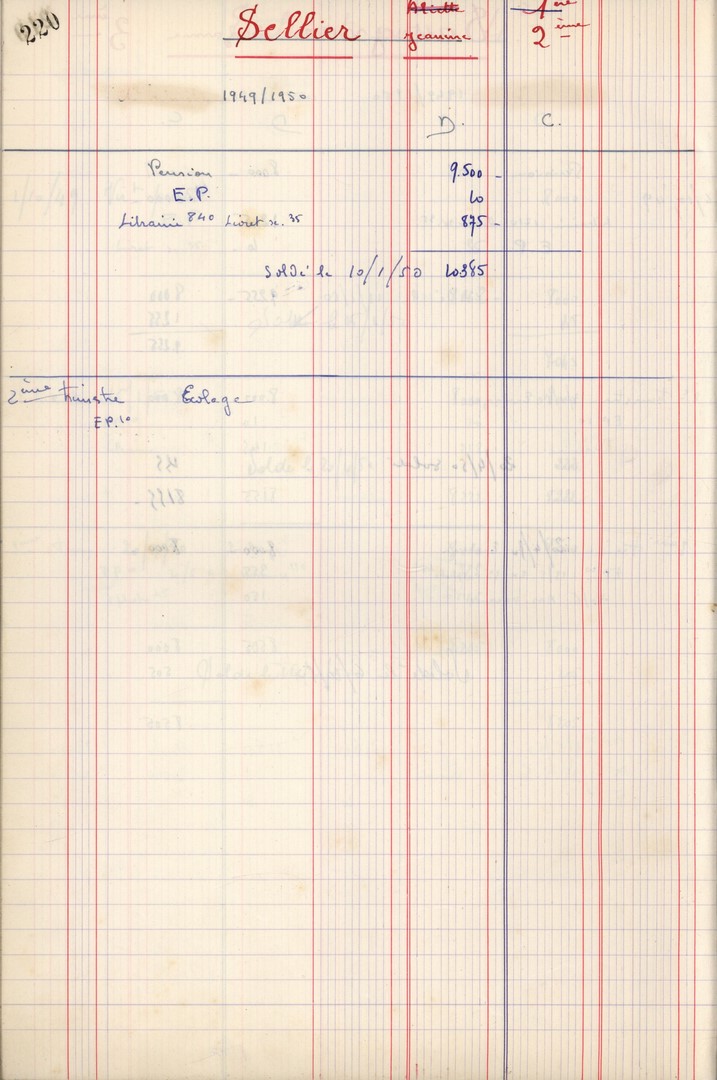 220 Sellier Aliette 1ère
Jeanine 2ème
1949/1950
D. C.
Pension 9.500 -
E.P. 10
Librairie 840 Livret sc. 35 875 -
Soldé le 10/1/50 10385
2ème trimestre Ecolage
E.P. 10